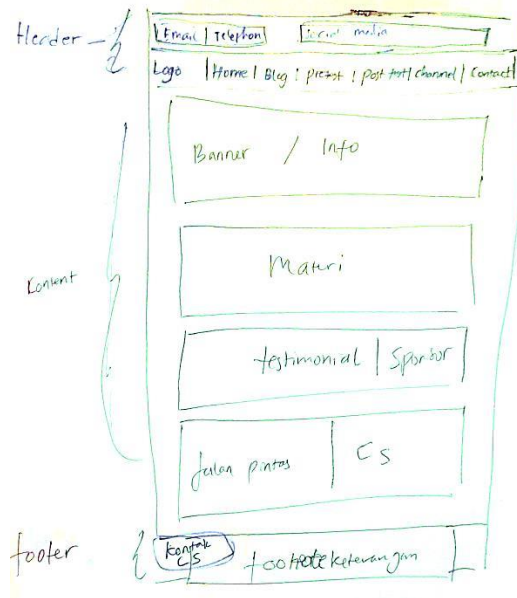 Header
Email | Telephon
Social media
Logo | Home | Blog | pretest | post test | channel | Contact
Banner / Info
Konten
Materi
testimonial | Sponsor
Jalan pintas | CS
footer
Kontak CS
footnote keterangan